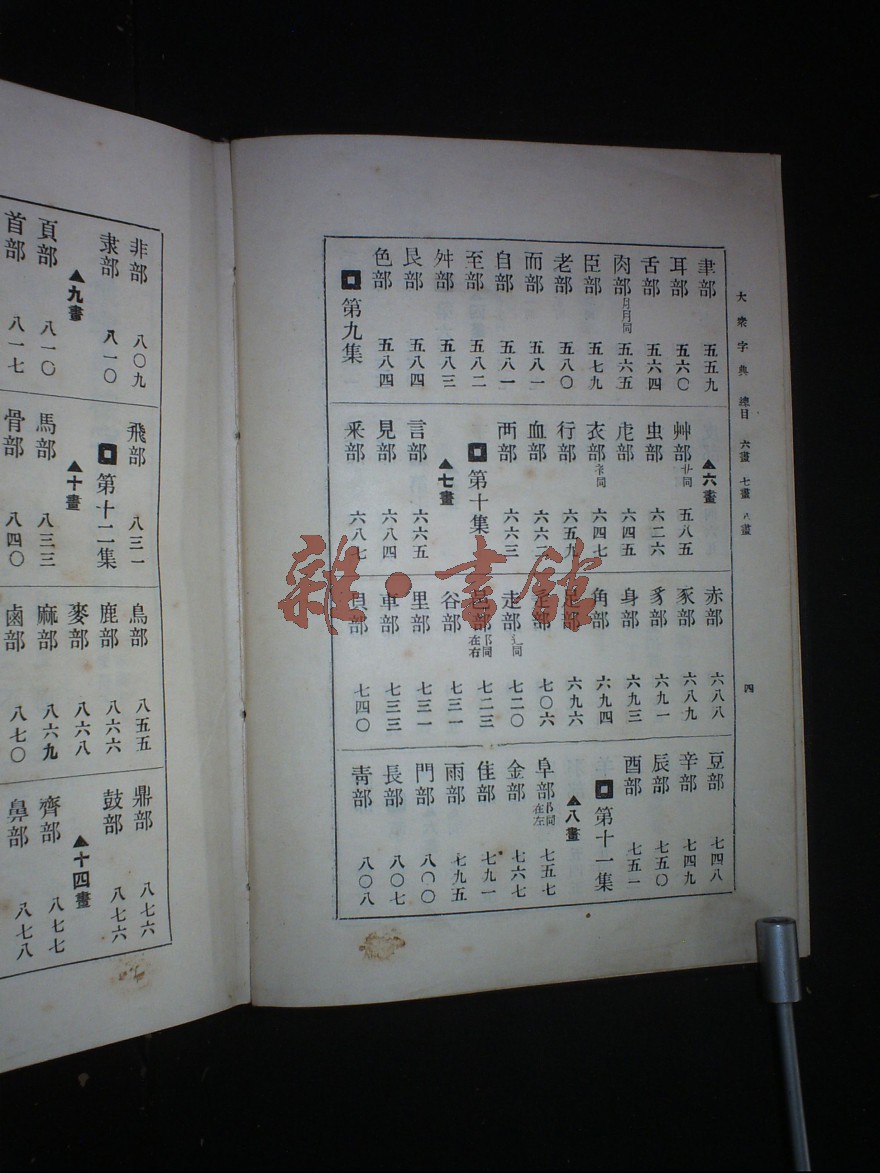 大衆字典 總目 六畫 七畫 八畫
四
聿部 五五九
耳部 五六〇
舌部 五六四
肉部月月同 五六五
臣部 五七九
老部 五八〇
而部 五八一
自部 五八一
至部 五八二
舛部 五八三
艮部 五八四
色部 五八四
第九集
▲六畫
艸部艹同 五八五
虫部 六二六
虍部 六四五
衣部衤同 六四七
行部 六五九
血部 六六二
襾部 六六三
第十集
▲七畫
言部 六六五
見部 六八四
釆部 六八七
赤部 六八八
豕部 六八九
豸部 六九一
身部 六九三
角部 六九四
足部 六九六
部 七〇六
走部辶同 七二〇
邑部阝同在右 七二三
谷部 七三一
里部 七三一
車部 七三三
貝部 七四〇
豆部 七四八
辛部 七四九
辰部 七五〇
酉部 七五一
第十一集
▲八畫
阜部阝同在左 七五七
金部 七六七
隹部 七九一
雨部 七九五
門部 八〇〇
長部 八〇七
靑部 八〇八
雜·書館
非部 八〇九
隶部 八一〇
▲九畫
頁部 八一〇
首部 八一七
飛部 八三一
第十二集
▲十畫
馬部 八三三
骨部 八四〇
鳥部 八五五
鹿部 八六六
麥部 八六八
麻部 八六九
鹵部 八七〇
鼎部 八七六
鼓部 八七六
▲十四畫
齊部 八七七
鼻部 八七八